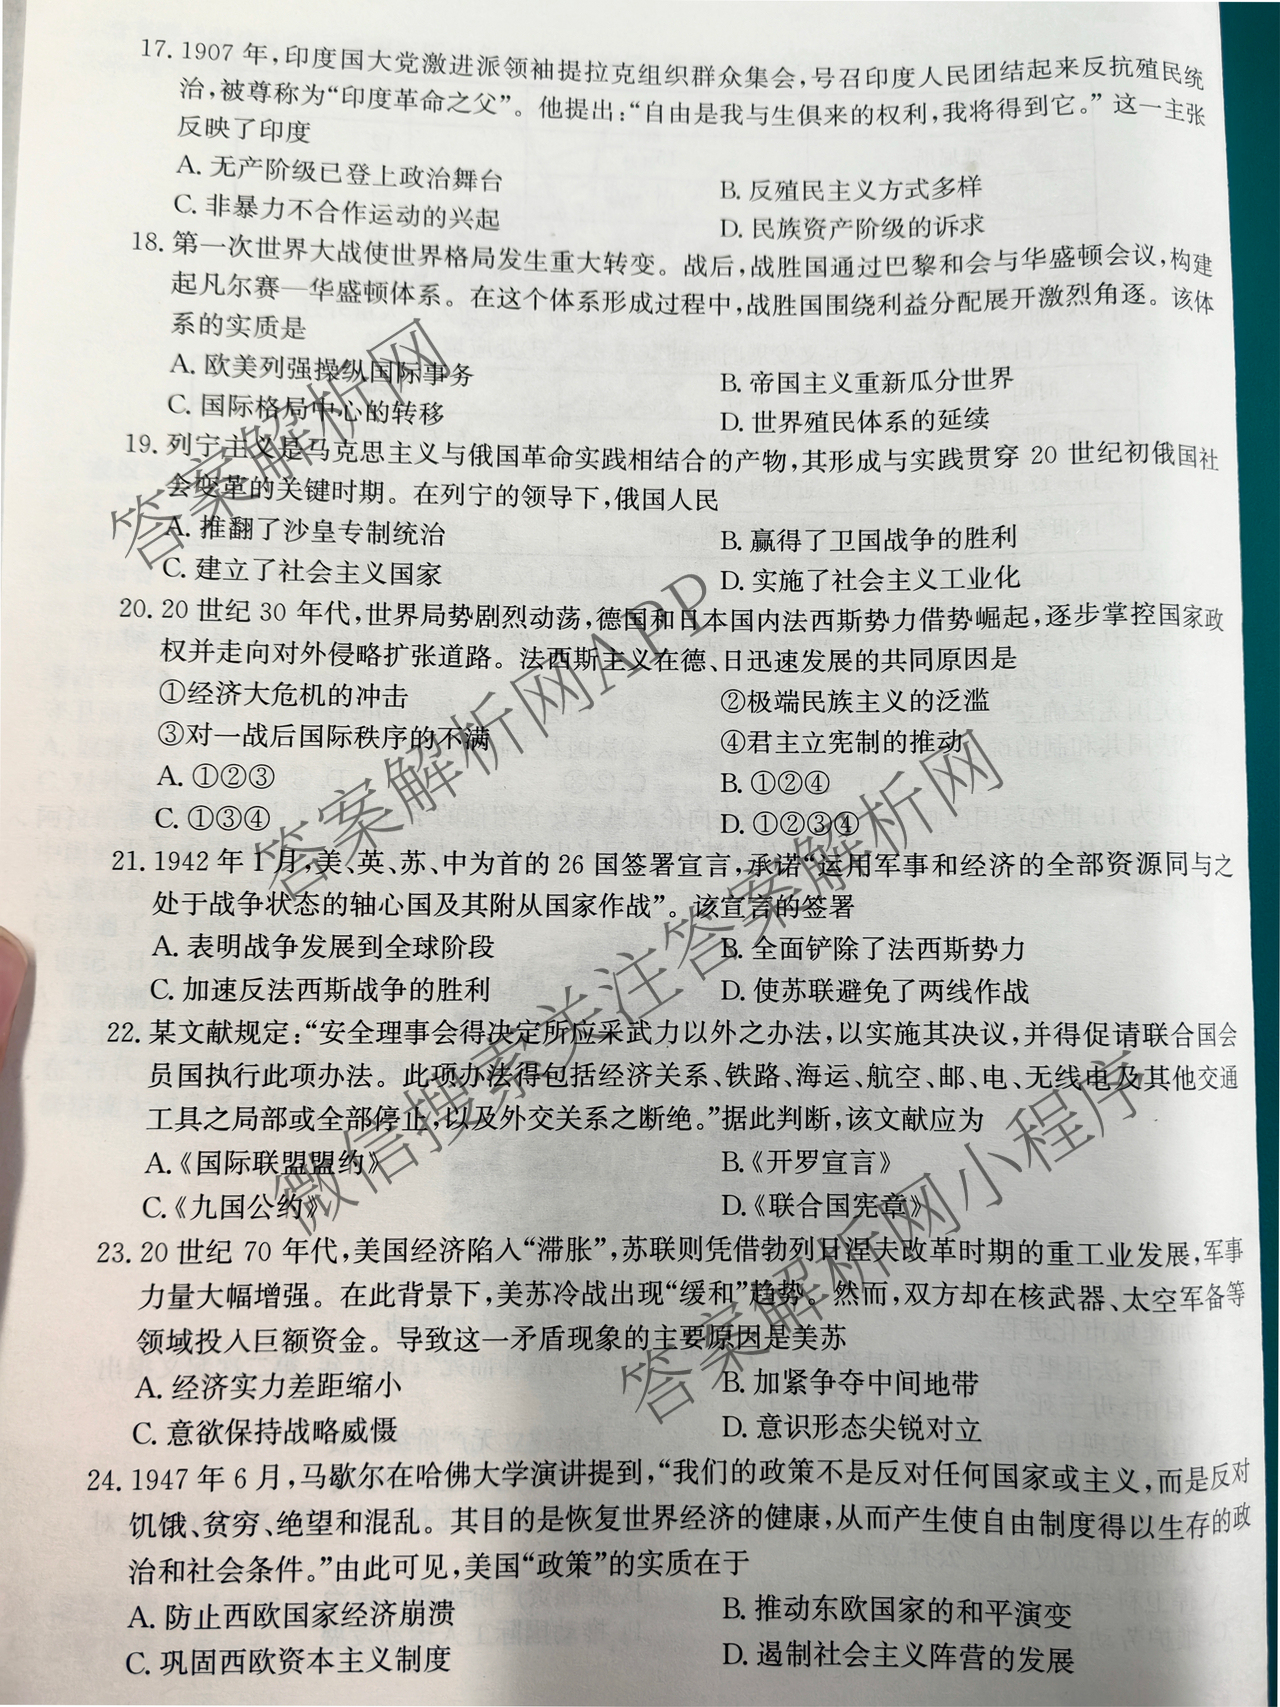 17. 1907 年，印度国大党激进派领袖提拉克组织群众集会，号召印度人民团结起来反抗殖民统
治，被尊称为“印度革命之父”。他提出：“自由是我与生俱来的权利，我将得到它。”这一主张
反映了印度
A. 无产阶级已登上政治舞台
B. 反殖民主义方式多样
C. 非暴力不合作运动的兴起
D. 民族资产阶级的诉求
18. 第一次世界大战使世界格局发生重大转变。战后，战胜国通过巴黎和会与华盛顿会议，构建
起凡尔赛—华盛顿体系。在这个体系形成过程中，战胜国围绕利益分配展开激烈角逐。该体
系的实质是
A. 欧美列强操纵国际事务
B. 帝国主义重新瓜分世界
C. 国际格局中心的转移
D. 世界殖民体系的延续
19. 列宁主义是马克思主义与俄国革命实践相结合的产物，其形成与实践贯穿 20 世纪初俄国社
会变革的关键时期。在列宁的领导下，俄国人民
A. 推翻了沙皇专制统治
B. 赢得了卫国战争的胜利
C. 建立了社会主义国家
D. 实施了社会主义工业化
20. 20 世纪 30 年代，世界局势剧烈动荡，德国和日本国内法西斯势力借势崛起，逐步掌控国家政
权并走向对外侵略扩张道路。法西斯主义在德、日迅速发展的共同原因是
①经济大危机的冲击
②极端民族主义的泛滥
③对一战后国际秩序的不满
④君主立宪制的推动
A. ①②③
B. ①②④
C. ①③④
D. ①②③④
21. 1942 年 1 月，美、英、苏、中为首的 26 国签署宣言，承诺“运用军事和经济的全部资源同与之
处于战争状态的轴心国及其附从国家作战”。该宣言的签署
A. 表明战争发展到全球阶段
B. 全面铲除了法西斯势力
C. 加速反法西斯战争的胜利
D. 使苏联避免了两线作战
22. 某文献规定：“安全理事会得决定所应采武力以外之办法，以实施其决议，并得促请联合国会
员国执行此项办法。此项办法得包括经济关系、铁路、海运、航空、邮、电、无线电及其他交通
工具之局部或全部停止，以及外交关系之断绝。”据此判断，该文献应为
A.《国际联盟盟约》
B.《开罗宣言》
C.《九国公约》
D.《联合国宪章》
23. 20 世纪 70 年代，美国经济陷入“滞胀”，苏联则凭借勃列日涅夫改革时期的重工业发展，军事
力量大幅增强。在此背景下，美苏冷战出现“缓和”趋势。然而，双方却在核武器、太空军备等
领域投入巨额资金。导致这一矛盾现象的主要原因是美苏
A. 经济实力差距缩小
B. 加紧争夺中间地带
C. 意欲保持战略威慑
D. 意识形态尖锐对立
24. 1947 年 6 月，马歇尔在哈佛大学演讲提到，“我们的政策不是反对任何国家或主义，而是反对
饥饿、贫穷、绝望和混乱。其目的是恢复世界经济的健康，从而产生使自由制度得以生存的政
治和社会条件。”由此可见，美国“政策”的实质在于
A. 防止西欧国家经济崩溃
B. 推动东欧国家的和平演变
C. 巩固西欧资本主义制度
D. 遏制社会主义阵营的发展
答案解析网
答案解析网APP
微信搜索关注答案解析网
答案解析网小程序